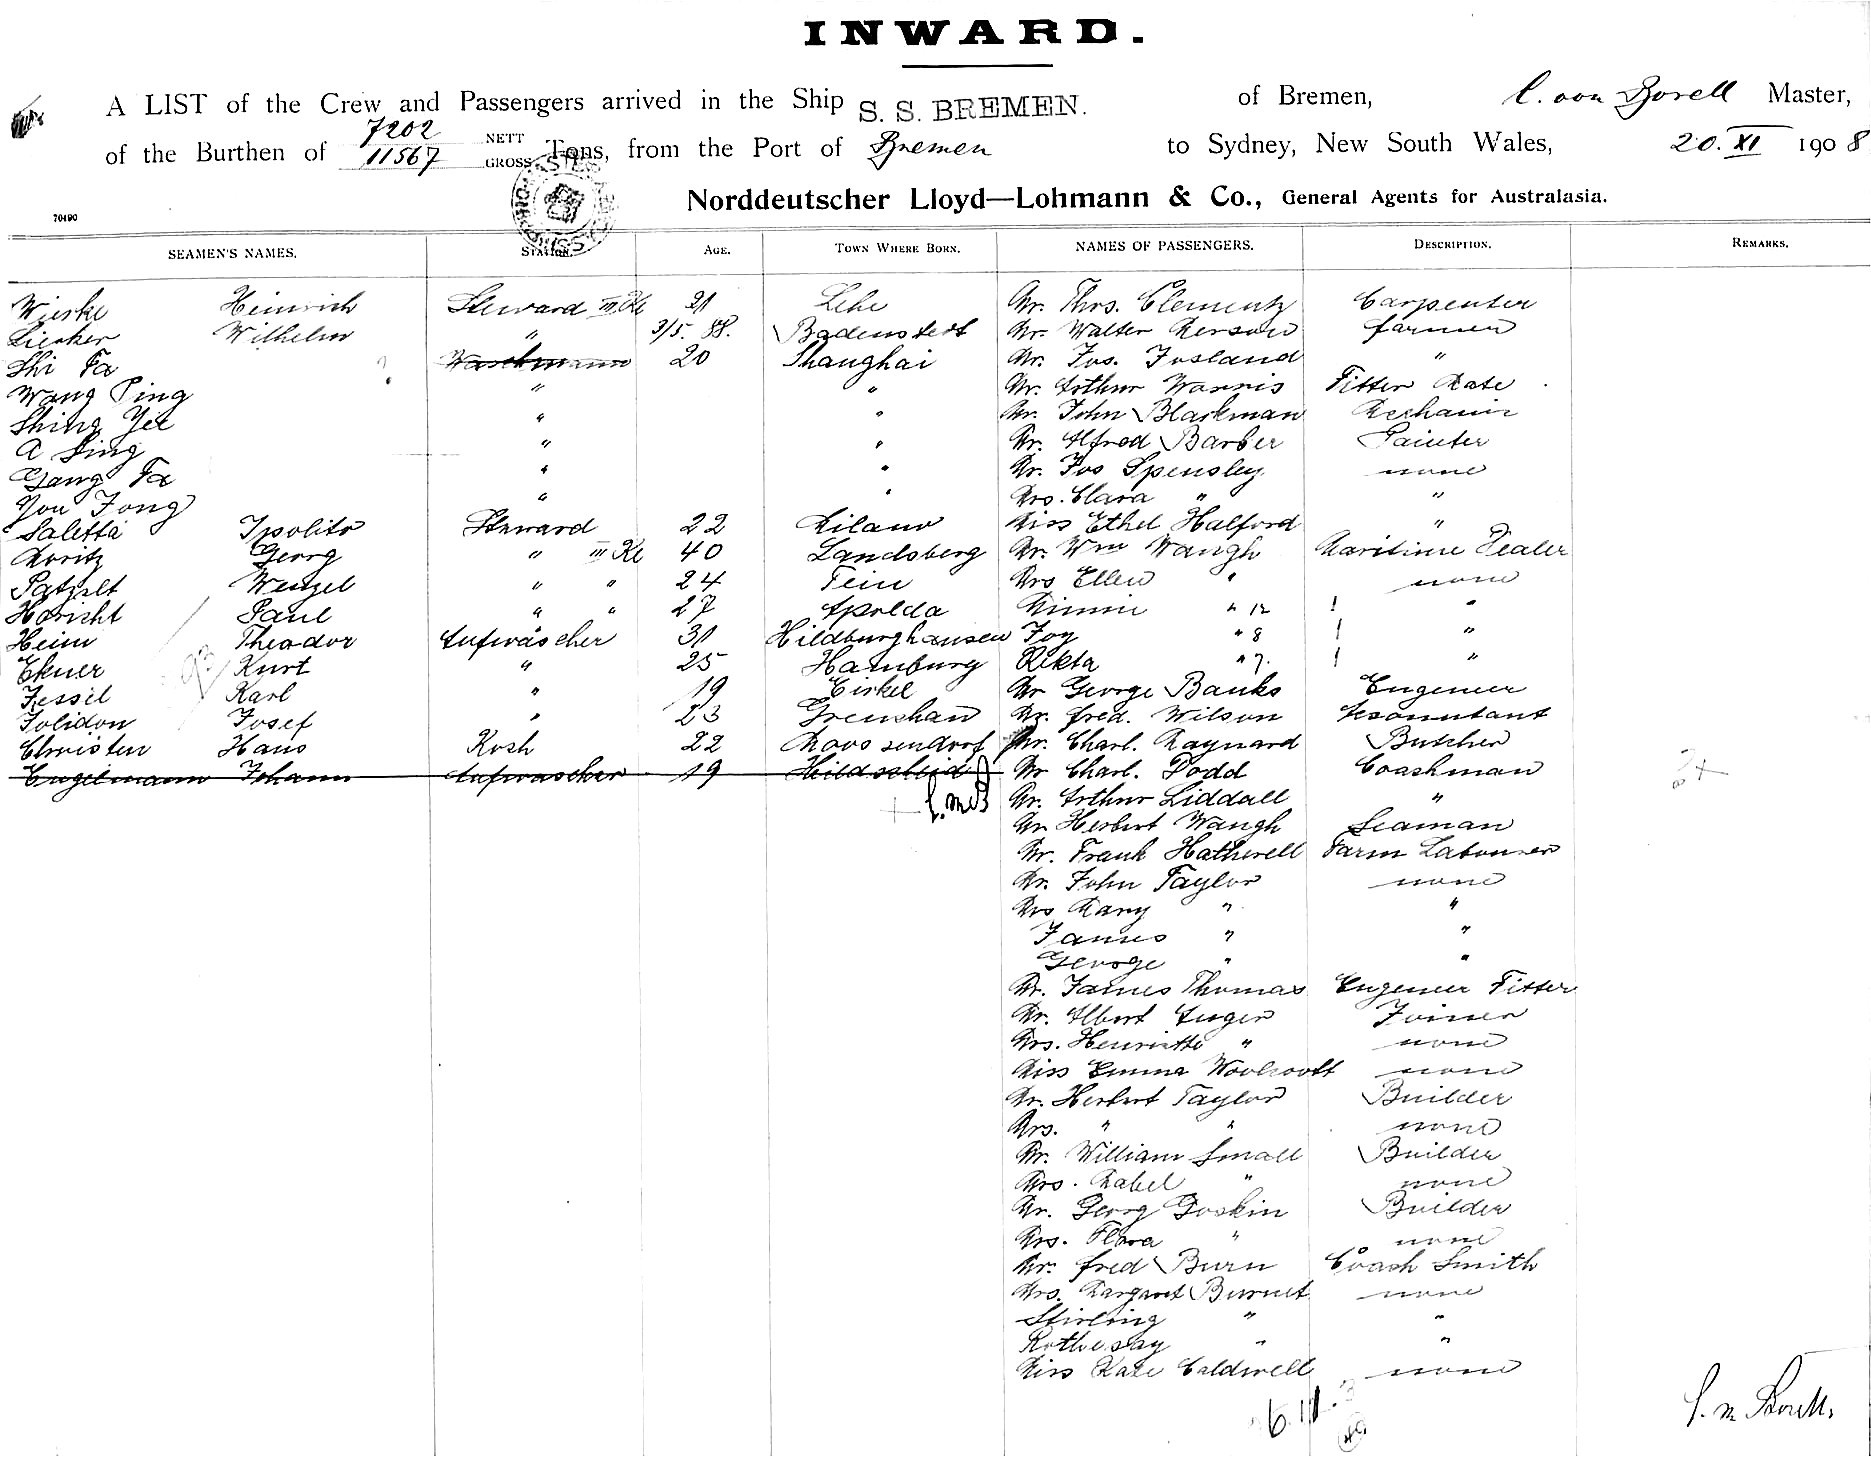 INWARD.
A LIST of the Crew and Passengers arrived in the Ship S. S. BREMEN. of Bremen, C. von Borell Master,
of the Burthen of 7202 NETT 11567 GROSS Tons, from the Port of Bremen to Sydney, New South Wales, 20. XI 1908
Norddeutscher Lloyd—Lohmann & Co., General Agents for Australasia.
70490
SEAMEN'S NAMES. STATION. AGE. TOWN WHERE BORN. NAMES OF PASSENGERS. DESCRIPTION. REMARKS.
Wieske Heinrich Steward III Kl 21 Lehe Mr. Thos. Clementz Carpenter
Lieker Wilhelm " 3/5. 88. Badenstedt Mr. Walter farmer
Shi Fa Waschmann 20 Shanghai Mr. Jos. Josland "
Wang Ping " " Mr. Arthur Warris Fitter Mate
Shing Yee " " Mr. John Blackman Mechanic
A Sing " " Mr. Alfred Barber Painter
Gang Fa " " Mr. Jos Spensley none
You Fong " " Mrs. Clara " "
Saletta Ipolito Steward 22 Milano Miss Ethel Halford "
Moritz Georg " III Kl 40 Landsberg Mr. Wm Waugh Maritime Dealer
Patzelt Wenzel " " 24 Tein Mrs Ellen " none
Horicht Paul " " 27 Apolda Minnie " 12 "
Heim Theodor Aufwäscher 31 Hildburghausen Joy " 8 "
Ekner Kurt " 25 Hamburg Rekta " 7. "
Fessel Karl " 19 Eickel Mr George Banks Engineer
Folidon Josef " 23 Grenshan Mr. fred. Wilson Accountant
Christen Hans Koch 22 Moossendorf Mr. Charl. Maynard Butcher
Engelmann Johann Aufwäscher 19 Hildscheid Mr Charl. Dodd Coachman
Mr. Arthur Liddall "
Mr Herbert Waugh Seaman
Mr. Frank Hatherell Farm Labourer
Mr. John Taylor none
Mrs Mary " "
James " "
George " "
Mr. James Thomas Engineer Fitter
Mr. Albert Auger Joiner
Mrs. Henriette " none
Miss Emma Woolcott none
Mr. Herbert Taylor Builder
Mrs. " " none
Mr. William Small Builder
Mrs. Mabel " none
Mr. Georg Goskin Builder
Mrs. Flora " none
Mr. fred Burn Coach Smith
Mrs. Margaret Burnet none
Stirling " "
Rothesay " "
Miss Kate Caldwell none